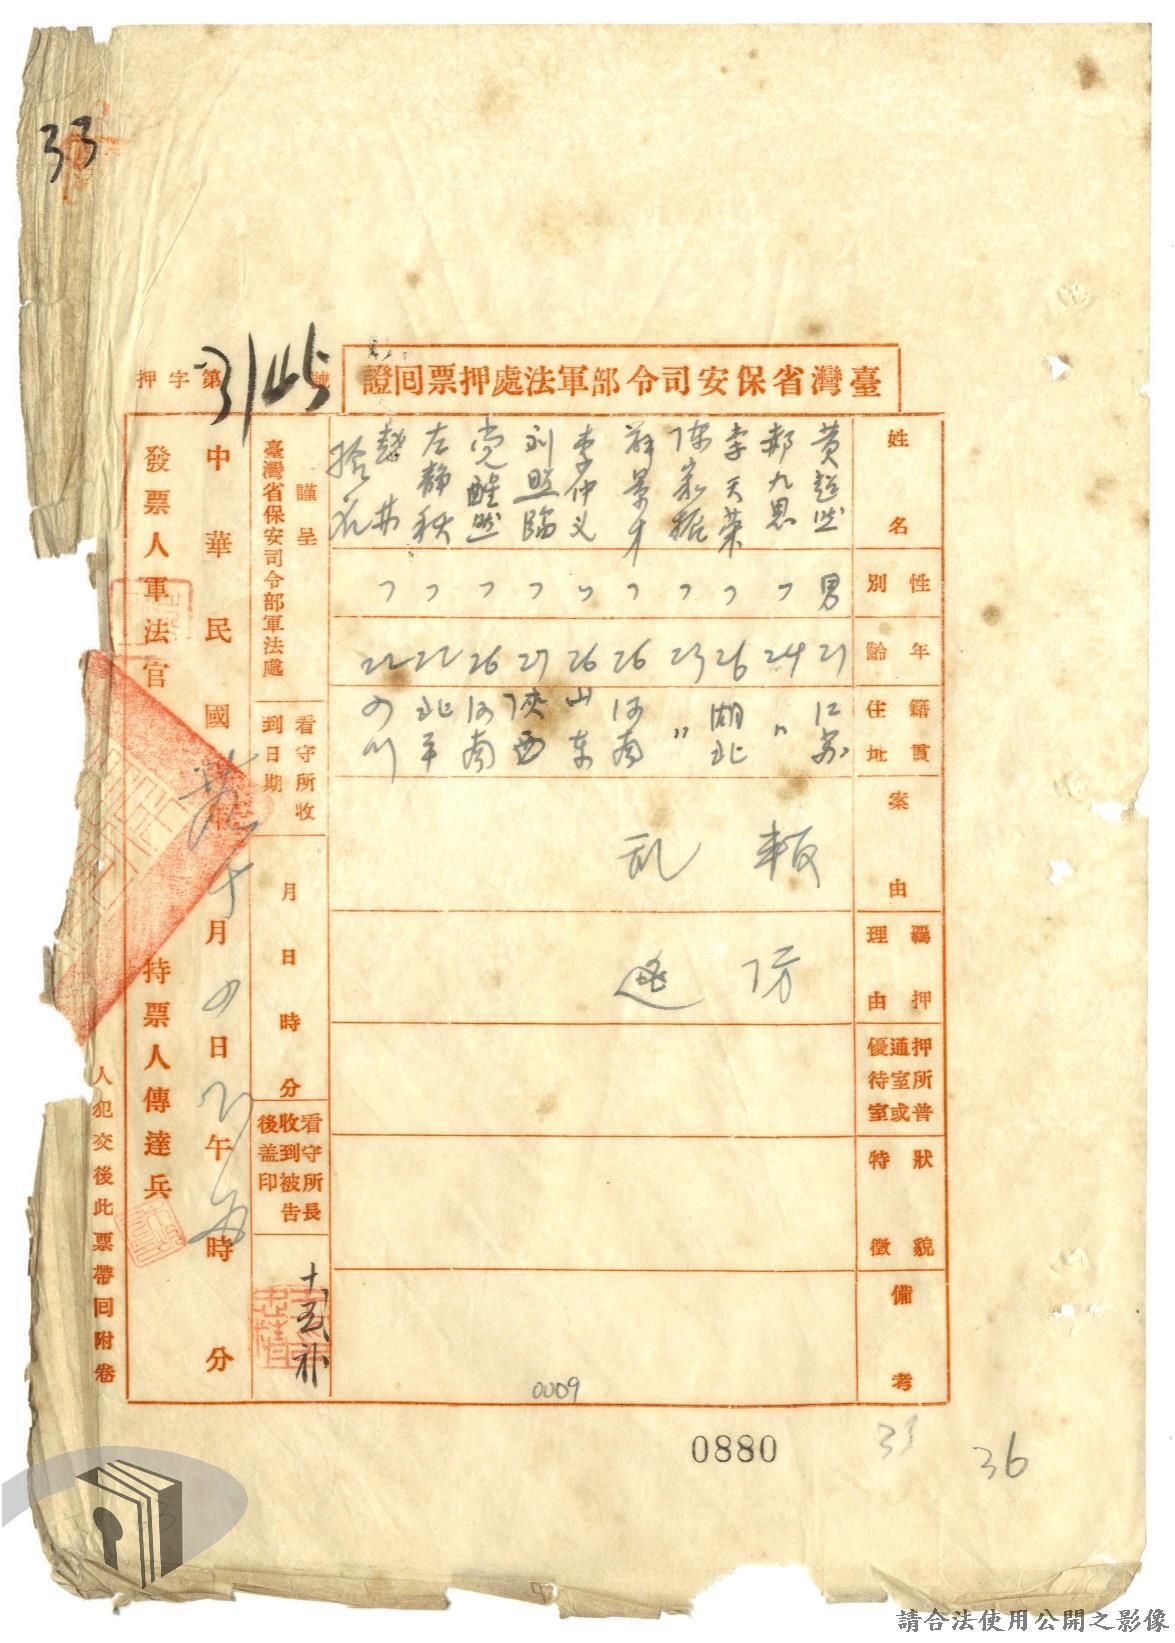 33
臺灣省保安司令部軍法處押票回證
押字第3145號
姓名
黃超然
郝九思
李天榮
陳家振
李仲义
刘照臨
党醒然
左静秋
性別
男 〃 〃 〃 〃 〃 〃 〃 〃 〃
年齡
21 24 26 23 26 26 27 26 22 22
籍貫住址
江苏
〃
湖北
〃
河南
山东
陝西
河南
北平
四川
案由
叛乱
羈押理由
防逃
押所普通室或優待室
狀貌特徵
備考
謹呈
臺灣省保安司令部軍法處
看守所收到日期
月日時分
看守所長收到被告後盖印
中華民國 年十月四日 午 時 分
發票人軍法官
持票人傳達兵
人犯交後此票帶回附卷
0009
0880
33
36
請合法使用公開之影像